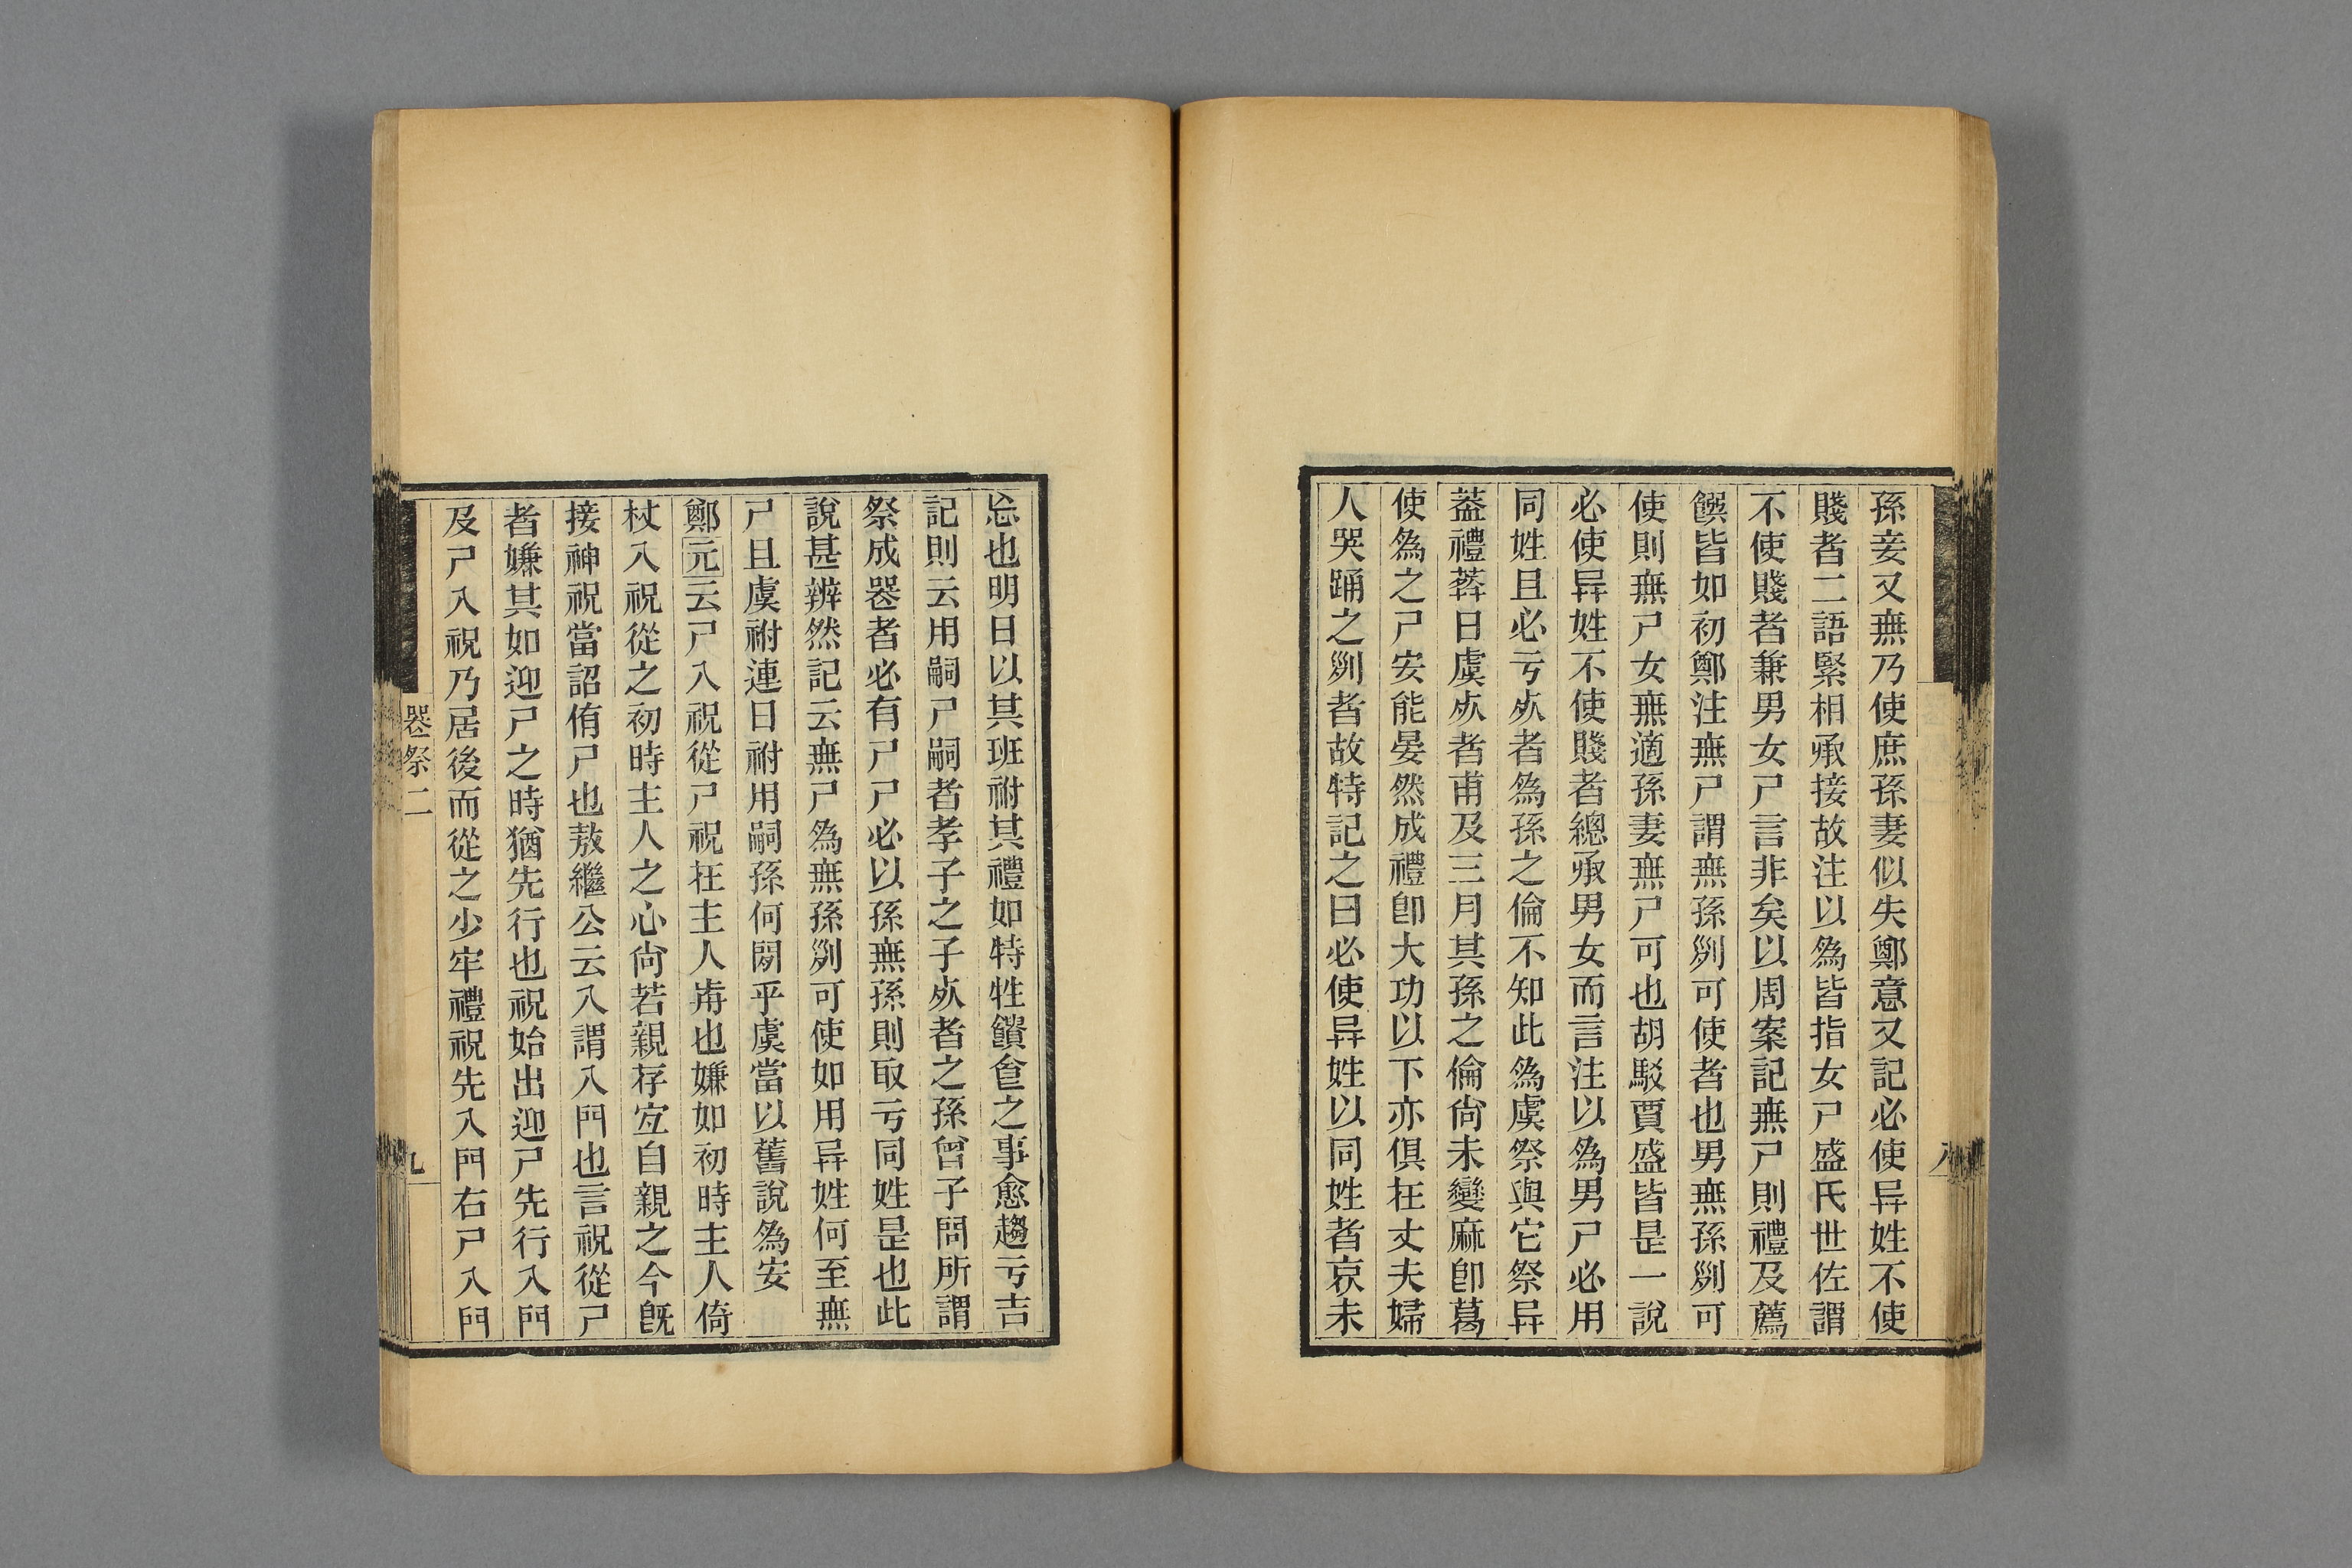 孫妾又無乃使庶孫妻似失鄭意又記必使异姓不使
賤者二語緊相承接故注以為皆指女尸盛氏世佐謂
不使賤者兼男女尸言非矣以周案記無尸則禮及薦
饌皆如初鄭注無尸謂無孫列可使者也男無孫列可
使則無尸女無適孫妻無尸可也胡駁賈盛皆是一說
必使异姓不使賤者總承男女而言注以為男尸必用
同姓且必亏㱾者為孫之倫不知此為虞祭與它祭异
葢禮葬日虞㱾者甫及三月其孫之倫尚未變麻卽葛
使為之尸安能晏然成禮卽大功以下亦俱在丈夫婦
人哭踊之列者故特記之曰必使异姓以同姓者哀未
忘也明日以其班祔其禮如特牲饋食之事愈趨亏吉
記則云用嗣尸嗣者孝子之子㱾者之孫曾子問所謂
祭成喪者必有尸尸必以孫無孫則取亏同姓是也此
說甚辨然記云無尸為無孫列可使如用异姓何至無
尸且虞祔連日祔用嗣孫何閡乎虞當以舊說為安
鄭元云尸入祝從尸祝在主人前也嫌如初時主人倚
杖入祝從之初時主人之心尚若親存宐自親之今旣
接神祝當詔侑尸也敖繼公云入謂入門也言祝從尸
者嫌其如迎尸之時猶先行也祝始出迎尸先行入門
及尸入祝乃居後而從之少牢禮祝先入門右尸入門
喪祭二
九
八